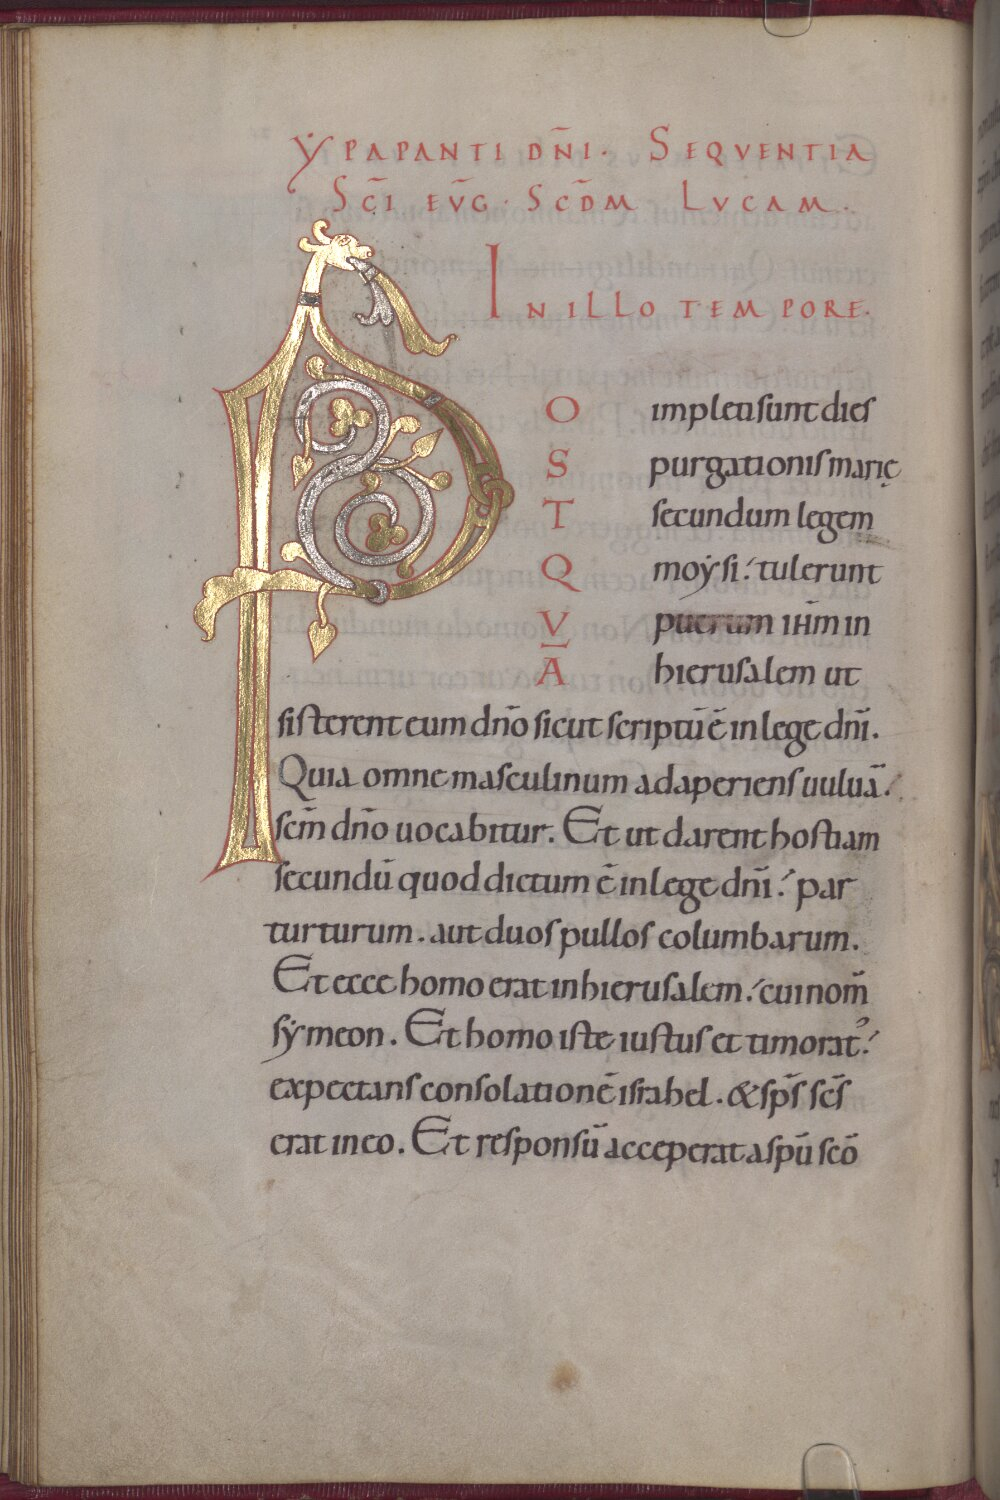 ẎPAPANTI DN̄I. SEQVENTIA
SC̄I EVḠ. SCD̄M LVCAM.
IN ILLO TEMPORE.
P
O impleti sunt dies
S purgationis marię
T secundum legem
Q moẏsi. tulerunt
V puerum ihm̄ in
A hierusalem ut
sisterent eum dn̄o sicut scriptū ē in lege dn̄i.
Quia omne masculinum adaperiens uuluā.
scm̄ dn̄o uocabitur. Et ut darent hostiam
secundū quod dictum ē in lege dn̄i. par
turturum. aut duos pullos columbarum.
Et ecce homo erat in hierusalem. cui nom̄
sẏmeon. Et homo iste iustus et timorat᾿.
expectans consolationē israhel. & sp̄s sc̄s
erat in eo. Et responsū acceperat a sp̄u sc̄o